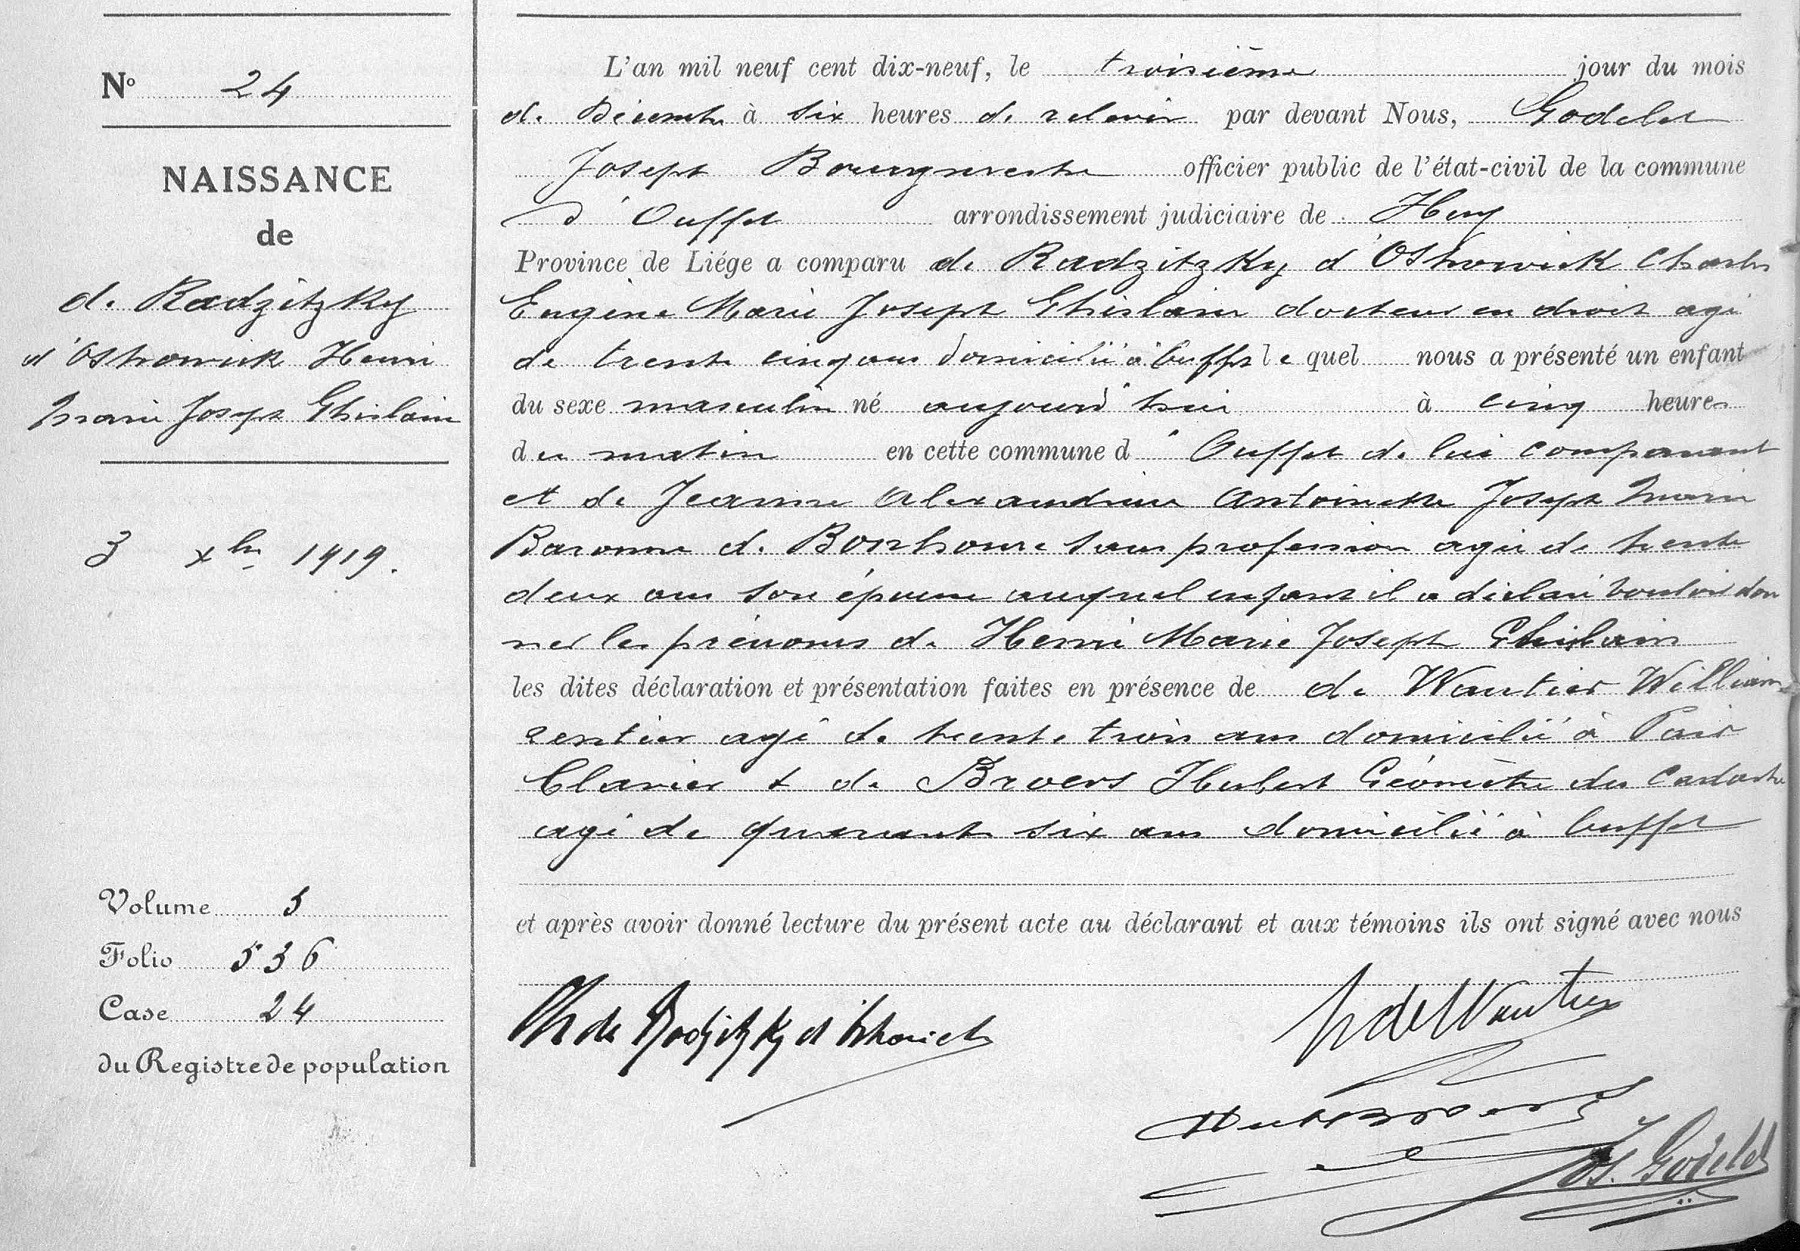 N° 24
NAISSANCE
de
de Radzitzky
d'Ostrowick Henri
Marie Joseph Ghislain
3 Xbre 1919.
Volume 5
Folio 536
Case 24
du Registre de population
L'an mil neuf cent dix-neuf, le troisième jour du mois
de Décembre à six heures de relevée par devant Nous, Godelet
Joseph Bourgmestre officier public de l'état-civil de la commune
d'Ouffet arrondissement judiciaire de Huy
Province de Liége a comparu de Radzitzky d'Ostrowick Charles
Eugène Marie Joseph Ghislain docteur en droit agé
de trente cinq ans domicilié à Ouffet lequel nous a présenté un enfant
du sexe masculin né aujourd'hui à cinq heures
du matin en cette commune d'Ouffet de lui comparant
et de Jeanne Alexandrine Antoinette Joseph Marie
Baronne de Bonhome sans profession agée de trente
deux ans son épouse auquel enfant il a déclaré vouloir don
ner les prénoms de Henri Marie Joseph Ghislain
les dites déclaration et présentation faites en présence de de Wautier William
rentier agé de trente trois ans domicilié à Pair
Clavier & de Broers Hubert Géomètre du Cadastre
agé de quarante six ans domicilié à Ouffet
et après avoir donné lecture du présent acte au déclarant et aux témoins ils ont signé avec nous
Ch de Radzitzky d'Ostrowick
W de Wautier
Hub Broers
Jos. Godelet